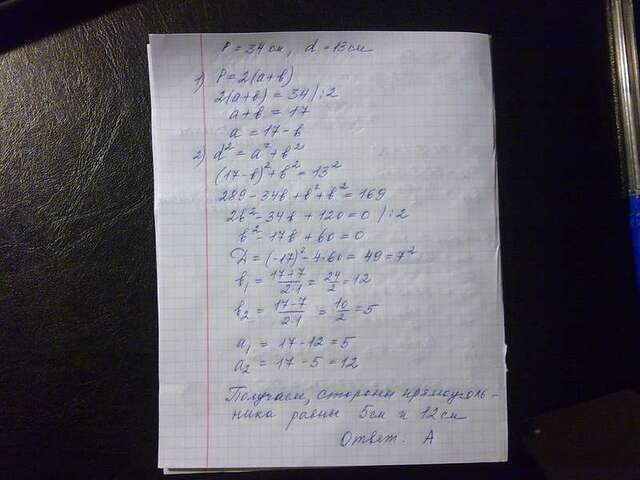 P = 34 см, d = 13 см
1) P = 2(a+b)
2(a+b) = 34 /:2
a+b = 17
a = 17-b
2) d² = a²+b²
(17-b)²+b² = 13²
289-34b+b²+b² = 169
2b²-34b+120=0 /:2
b²-17b+60=0
D=(-17)²-4·60=49=7²
b₁ = (17+7)/(2·1) = 24/2 = 12
b₂ = (17-7)/(2·1) = 10/2 = 5
a₁ = 17-12=5
a₂ = 17-5=12
Получаем, стороны прямоуголь-
ника равны 5см и 12см
Ответ: А